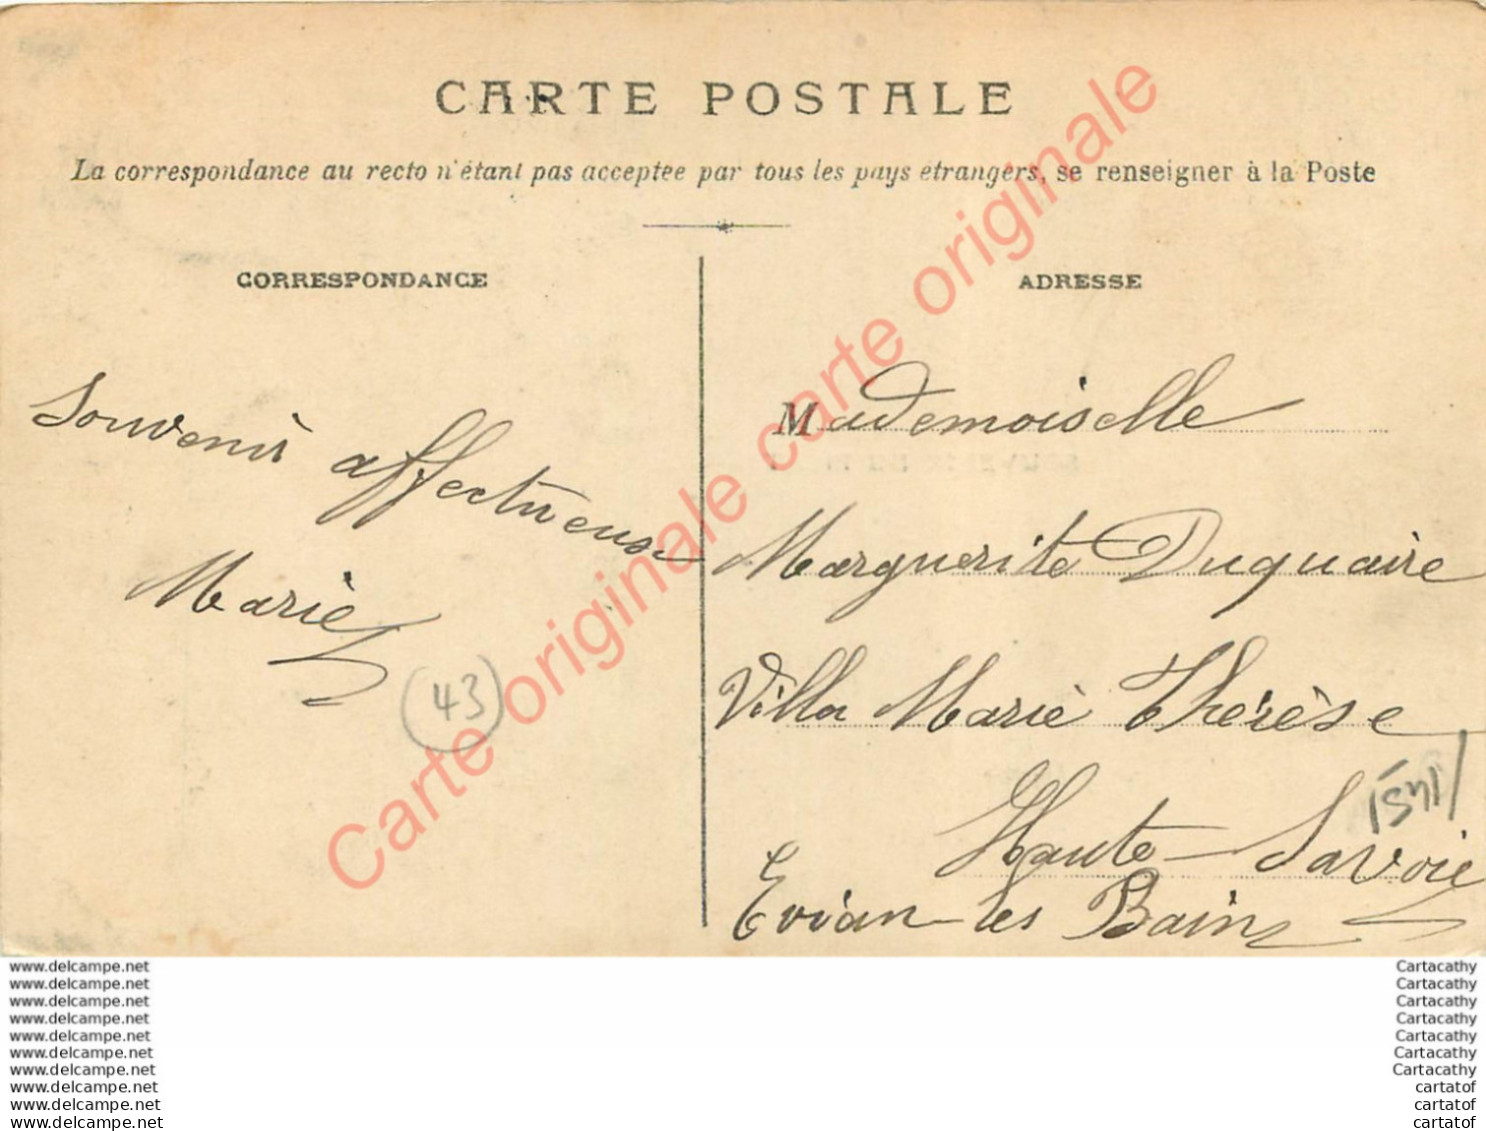 CARTE POSTALE
La correspondance au recto n'étant pas acceptée par tous les pays étrangers, se renseigner à la Poste
CORRESPONDANCE
Souvenir affectueuse
Marie
43
ADRESSE
Mademoiselle
Marguerite Duquaire
Villa Marie Thérèse
Haute-Savoie
Evian-les Bains
Carte originale carte originale
Carte originale
www.delcampe.net
www.delcampe.net
www.delcampe.net
www.delcampe.net
www.delcampe.net
www.delcampe.net
www.delcampe.net
www.delcampe.net
www.delcampe.net
www.delcampe.net
Cartacathy
Cartacathy
Cartacathy
Cartacathy
Cartacathy
Cartacathy
Cartacathy
cartatof
cartatof
cartatof